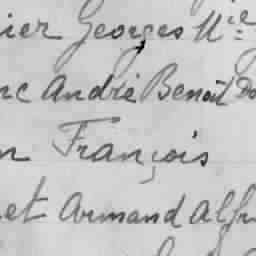 ier Georges Mce
nc André Benoît Do
n François
et Armand Alfr